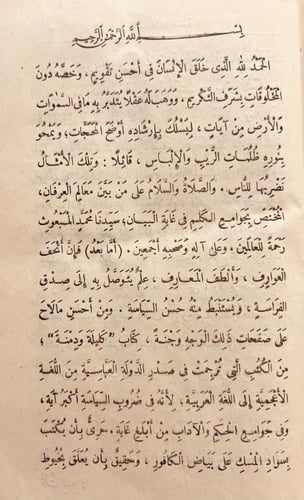 بِسْــــمِ اللَّهِ الرَّحْمَٰنِ الرَّحِيمِ
الحَمْدُ لِلهِ الَّذِى خَلَقَ الإِنْسَانَ فِى أَحْسَنِ تَقْوِيمٍ ، وَخَصَّهُ دُونَ
المَخْلُوقَاتِ بِشَرَفِ التَّكْرِيمِ ، وَوَهَبَ لَهُ عَقْلًا يَتَدَبَّرُ بِهِ مَا فِى السَّمٰوَاتِ
وَالأَرْضِ مِنْ آيَاتٍ ، لِيَسْلُكَ بِإِرْشَادِهِ أَوْضَحَ المَحَجَّاتِ ؛ وَيَمْحُوَ
بِنُورِهِ ظُلُمَاتِ الرَّيْبِ وَالإِلْبَاسِ ، قَائِلًا : وَتِلْكَ الأَمْثَالُ
نَضْرِبُهَا لِلنَّاسِ . وَالصَّلَاةُ وَالسَّلَامُ عَلَى مَنْ بَيَّنَ مَعَالِمَ العِرْفَانِ ،
المُخْتَصِّ بِجَوَامِعِ الكَلِمِ فِى غَايَةِ البَيَانِ ؛ سَيِّدِنَا مُحَمَّدٍ المَبْعُوثِ
رَحْمَةً لِلْعَالَمِينَ . وَعَلَى آلِهِ وَصَحْبِهِ أَجْمَعِينَ . ( أَمَّا بَعْدُ ) فَإِنَّ أَتْحَفَ
العَوَارِفِ ، وَأَلْطَفَ المَعَارِفِ ، عِلْمٌ يُتَوَصَّلُ بِهِ إِلَى صِدْقِ
الفِرَاسَةِ ، وَيُسْتَنْبَطُ مِنْهُ حُسْنُ السِّيَاسَةِ . وَمِنْ أَحْسَنِ مَا لَاحَ
عَلَى صَفَحَاتِ ذٰلِكَ الوَجْهِ وَجْنَةً ، كِتَابُ " كَلِيلَةَ وَدِمْنَةَ " ؛
مِنَ الكُتُبِ الَّتِى تُرْجِمَتْ فِى صَدْرِ الدَّوْلَةِ العَبَّاسِيَّةِ مِنَ اللُّغَةِ
الأَعْجَمِيَّةِ إِلَى اللُّغَةِ العَرَبِيَّةِ ؛ لِأَنَّهُ فِى ضُرُوبِ السِّيَاسَةِ أَكْبَرُ آيَةٍ ،
وَفِى جَوَامِعِ الحِكَمِ وَالآدَابِ مِنْ أَبْلَغِ غَايَةٍ ، حَرِىٌّ بِأَنْ يُكْتَبَ
بِسَوَادِ المِسْكِ عَلَى بَيَاضِ الكَافُورِ ، وَحَقِيقٌ بِأَنْ يُعَلَّقَ بِخُيُوطِ